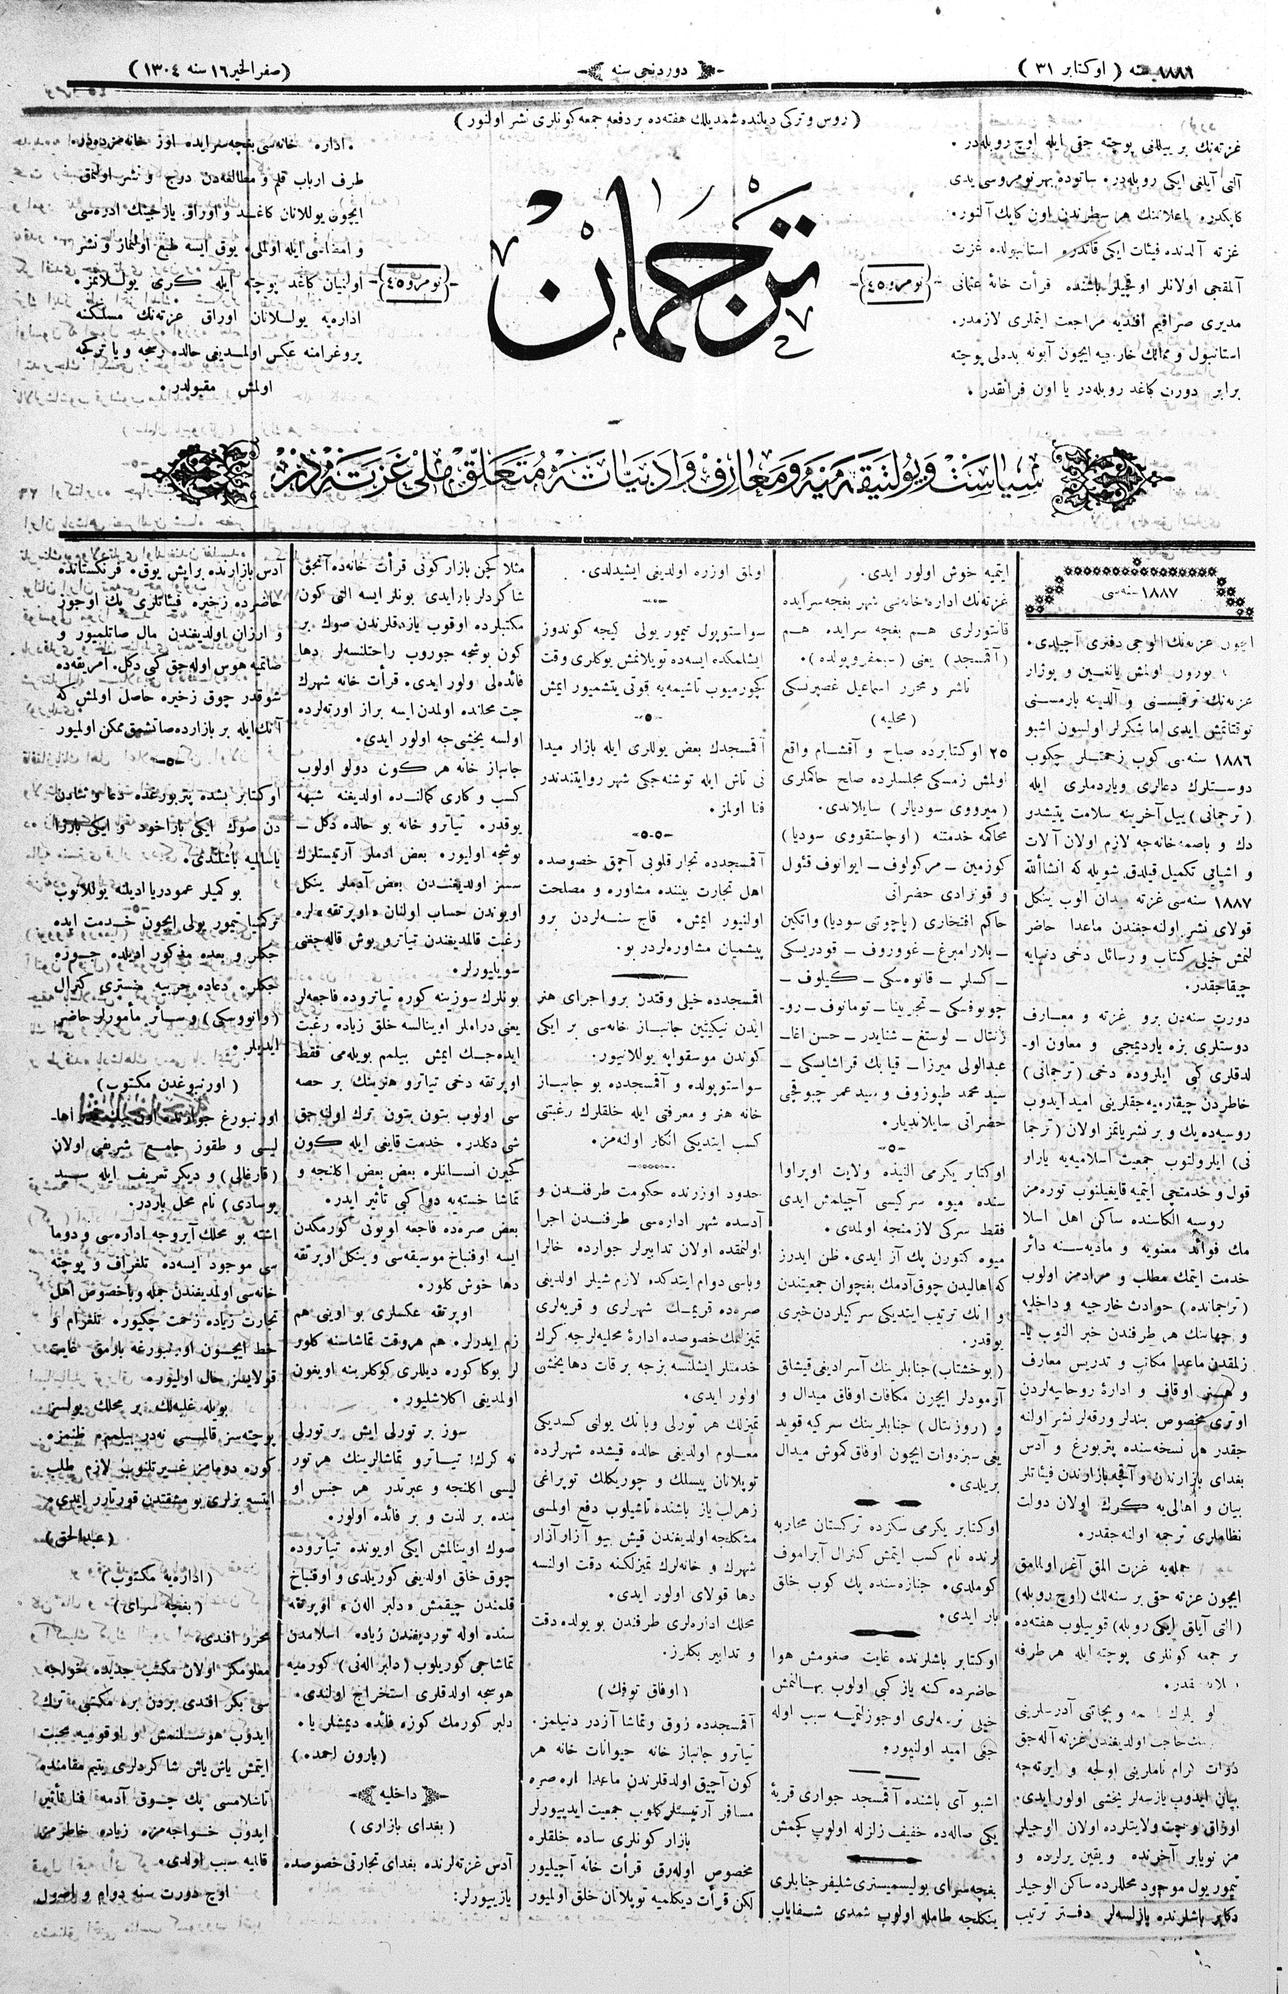 ١٨٨٦ سنه ( اوكتابر ٣١ )
دوردنجى سنه
( صفر الخير ١٦ سنه ١٣٠٤ )
( روس و تركى ديلنده شمديلك هفته‌ده بر دفعه جمعه كونلرى نشر اولنور )
غزته‌نك بر ييللغى پوچته حقى ايله اوچ روبله‌در .
آلتى آيلغى ايكى روبله‌در . ساتوده بهر نومروسى يدى
كاپكدر . اعلاننك هر سطرندن اون كاپك آلنور .
غزته آلمدنده فيئات ايكى قاتدر . استانبولده غزت
آلمقجى اولانلر اوقچيلر باشنده قرأت خانهٔ عثمانى
مديرى صرافيم افنديه مراجعت ايتملرى لازمدر .
استانبول و ممالك خارجيه ايچون آبونه بدلى پوچته
برابر دورت كاغد روبله‌در يا اون فرانقدر .
نومرو ٤٥
ترجمان
نومرو ٤٥
اداره خانه‌سى بغچه‌سرايده اوز خانه‌مزده‌در .
طرف ارباب قلم و مطالعه‌دن درج و نشر اولنمق
ايچون يوللانان كاغد و اوراق يازجينك ادره‌سى
و امضاسى ايله اولملى . يوق ايسه طبع اولنماز و نشر
اولنميان كاغد پوچته ايله كرى يوللانمز .
اداره‌يه يوللانان اوراق غزته‌نك مسلكنه
پروغرامنه عكس اولمديغى حالده رسجه و يا تركجه
اولمش مقبولدر .
سياست و پولتيقه‌يه و معارف و ادبياته متعلق ملى غزته‌در
١٨٨٧ سنه‌سى
ايچون غزته‌نك الوجى دفترى آچيلدى .
غزته‌نك ترقيسنى و آلدينه بارمسنى
توقتاتمش ايدى اما شكرلر اولسون اشبو
١٨٨٦ سنه‌سى كوب زحمتلر چكوب
دوستلرك دعالرى و ياردملرى ايله
( ترجمانى ) ييل آخرينه سلامت يتيشدر
دك و باصمه‌خانه‌جه لازم اولان آلات
و اشيايى تكميل قيلدق شويله كه انشاءالله
١٨٨٧ سنه‌سى غزته ميدان الوب ينكل
قولاى نشر اولنه‌جغندن ماعدا حاضر
لنمش خيلى كتاب و رسائل دخى دنيايه
چيقاجقدر .
دورت سنه‌دن برو غزته و معارف
دوستلرى بزه ياردمجى و معاون او-
لدقلرى كبى ايلروده دخى ( ترجمانى )
خاطردن چيقارميه‌جقلرينى اميد ايدوب
روسيه‌ده يك و بر نشرياتمز اولان ( ترجما
نى ) ايلرولتوب جمعيت اسلاميه‌يه يارار
قول و خدمتجى ايتميه قايغيلنوب توره‌مز
روسيه الكاسنده ساكن اهل اسلا
مك فوائد معنويه و ماديه‌سنه دائر
خدمت ايتمك مطلب و مرادمز اولوب
( ترجمانده ) حوادث خارجيه و داخليه
و جهاننك هر طرفندن خبر النوب يا-
زلمقدن ماعدا مكاتب و تدريس معارف
اوترى مخصوص بندلر و ورقه‌لر نشر اولنه
جقدر هر نسخه‌سنده پتربورغ و آدس
بغداى بازارندن و آقچه بازارندن فيئاتلر
بيان و اهالى‌يه كرك اولان دولت
نظاملرى ترجمه اولنه‌جقدر .
جمله‌يه غزت المق آغر اولمامق
ايچون غزته حقى بر سنه‌لك ( اوچ روبله )
( التى آيلق ايكى روبله ) قويليوب هفته‌ده
بر جمعه كونلرى پوچته ايله هر طرفه
ذوات كرام ناملرينى اولجه و ايرته‌جه
بيان ايدوب يازسه‌لر يخشى اولور ايدى .
اوزاق و چت ولايتلرده اولان الوجيلر
مز نويابر آخرنده و يقين يرلرده و
تيمور يول موجود محللرده ساكن الوجيلر
دكابر باشلرنده يازلسه‌لر دفتر ترتيب
ايتميه خوش اولور ايدى .
غزته‌نك اداره‌خانه‌سى شهر بغچه سرايده
قانتورلرى هم بغچه سرايده هم
( آقمسجد ) يعنى ( سيمفروپولده ) .
ناشر و محرر اسماعيل غصپرنسكى
( محليه )
٢٥ اوكتابرده صباح و آقشام واقع
اولمش زمسكى مجلسلرده صلح حاكملرى
( ميرووى سوديالر ) سايلاندى .
محاكمه خدمتنه ( اوچاستقووى سوديا )
كوزمين – مركولوف – ايوانوف قتول
و قونرادى حضراتى
حاكم افتخارى ( پاچوتنى سوديا ) واتكين
– بلارامبرغ – غووروف – قودريسكى
– كسلر – قانوه‌سكى – كيلوف –
ژنتال – لوستغ – شنايدر – حسن اغا-
عبدالولى ميرزا – قيا بك قراشايسكى –
سيد محمد طپوزوف و سيد عمر چبوقچى
حضراتى سايلانديلر .
اوكتابر يكرمى التيده ولايت اوپراوا
سنده ميوه سركيسى آچيلمش ايدى
فقط سركى لازمنجه اولمدى .
ميوه كتورن پك آز ايدى . ظن ايدرز
كه اهاليدن چوق آدمك بغچوان جمعيتندن
و انك ترتيب ايتديكى سركيلردن خبرى
يوقدر .
( بوخشتاب ) جنابلرينك آسراديغى قيشلق
آرمودلر ايچون مكافات اوفاق ميدال و
و ( روزنتال ) جنابلرينك سركيه قويد
يغى سبزه‌وات ايچون اوفاق كموش ميدال
بريلدى .
اوكتابر يكرمى سكزده تركستان محاربه
لرنده نام كسب ايتمش كنرال آبراموف
كوملدى . جنازه‌سنده پك كوب خلق
بار ايدى .
اوكتابر باشلرنده غايت صغومش هوا
حاضرده كنه ياز كبى اولوب بهالنمش
خيلى نرسه‌لرى اوجوزلتميه سبب اوله
جغى اميد اولنيور .
اشبو آى باشنده آقمسجد جوارى قريهٔ
يكى صاله‌ده خفيف زلزله اولوب كچمش
بغچه‌سراى پوليسميسترى شليفر جنابلرى
ينكلجه طامله اولوب شمدى شفاياب
اولمق اوزره اولديغى ايشيدلدى .
سواستوپول تيمور يولى كيجه كوندوز
ايشلمكده ايسه‌ده توپلانمش يوكلرى وقت
كچورميوب تاشيمه‌يه قوتى يتشميور ايمش
آقمسجدك بعض يوللرى ايله بازار ميدا
نى تاش ايله توشنه‌جكى شهر روايتندندر
فنا اولمز .
آقمسجدده تجار قلوبى آچمق خصوصنده
اهل تجارت بيننده مشاوره و مصلحت
اولنيور ايمش . قاچ سنه‌لردن برو
پيشميان مشاوره‌لردر بو .
اقمسجدده خيلى وقتدن برو اجراى هنر
ايدن نيكيتين جانباز خانه‌سى بر ايكى
كوندن موسقوايه يوللانيور .
سواستوپولده و آقمسجدده بو جانباز
خانه هنر و معرفتى ايله خلقلرك رغبتنى
كسب ايتديكى انكار اولنه‌مز .
حدود اوزرنده حكومت طرفندن و
آدسده شهر اداره‌سى طرفندن اجرا
اولنمقده اولان تدابيرلر جوارده خالرا
وباسى دوام ايتدكده لازم شيلر اولديغى
صره‌ده قريمك شهرلرى و قريه‌لرى
تميزلمك خصوصده ادارهٔ محليه‌لرجه كرك
خدمتلر ايشلنسه بزجه بر قات دها يخشى
اولور ايدى .
تميزلك هر تورلى وبانك يولنى كسديكى
معلوم اولديغى حالده قيشده شهرلرده
توپلانان پيسلك و چوريكلك توپراغى
زهرلاب ياز باشنده تاشيلوب دفع اولمسى
مشكلجه اولديغندن قيش بيو آزار آزار
شهرك و خانه‌لرك تميزلكنه دقت اولنسه
دها قولاى اولور ايدى .
محلك اداره‌لرى طرفندن بو يولده دقت
و تدابير بكلرز .
( اوفاق توفك )
آقمسجدده زوق و تماشا آزدر دنيلمز .
تياترو جانباز خانه حيوانات خانه هر
كون آچيق اولدقلرندن ماعدا اره صره
مسافر آرتيستلر كلوب جمعيت ايدييورلر
بازار كونلرى ساده خلقلره
مخصوص اوله‌رق قرأت خانه آچيليور
لكن قرأت ديكلميه توپلانان خلق اولميور
مثلا كچن بازار كونى قرأت خانه‌ده آنجق
شاكردلر بار ايدى بونلر ايسه التى كون
مكتبلرده اوقوب يازدقلرندن صوك بر
كون بوشجه جوروب راحتلنسه‌لر دها
فائده‌لى اولور ايدى . قرأت خانه شهرك
چت محلنده اولمدن ايسه براز اورته‌لرده
اولسه يخشى‌جه اولور ايدى .
جانباز خانه هر كون دولو اولوب
كسب و كارى كمالنده اولديغنه شبهه
يوقدر . تياترو خانه بو حالده دكل –
بوشجه اوليور . بعض ادملر آرتيستلرك
سسز اولديغندن بعض آدملر ينكل
اويوندن حساب اولنان «اوپرتقه» لره
رغبت قالمديغندن تياترو بوش قاله‌جغنى
سويليورلر .
بونلرك سوزينه كوره تياتروده فاجعه‌لر
يعنى درامه‌لر اوينالسه خلق زياده رغبت
ايده‌جك ايمش بيلمم بويله‌مى فقط
اوپرتقه دخى تياترو هنرينك بر حصه
سى اولوب بتون بتون ترك اولنه‌جق
شى دكلدر . خدمت قايغى ايله كون
كچيرن انسانلره بعض بعض اكلنجه و
تماشا خسته‌يه دوا كبى تأثير ايدر .
بعض صره‌ده فاجعه اويونى كورمكدن
ايسه اوفنباخ موسيقه‌سى و ينكل اوپرتقه
دها خوش كلور .
اوپرتقه عكسلرى بو اوينى هم
زم ايدرلر . هم هر وقت تماشاسنه كلور
لر بوكا كوره ديللرى كوكلرينه اويغون
اولمديغى اكلاشليور .
سوز بر تورلى ايش بر تورلى
نه كرك ! تياترو تماشالرينك هر تور
ليسى اكلنجه و عبرتدر هر جنس او
يننده بر لذت و بر فائده اولور .
صوك اوينالمش ايكى اويونده تياتروده
چوق خلق اولديغى كوريلدى و اوفنباخ
قلمندن چيقمش «دلبر اله‌ن» اوپرتقه
سنده اوله تورديغندن زياده اسلامدن
تماشاجى كوريلوب ( دلبر اله‌نى ) كورميه
هوسجه اولدقلرى استخراج اولندى .
دلبر كورمك كوزه فائده ديمشلر يا .
( بارون احمد . )
داخليه
( بغداى بازارى )
آدس غزته‌لرنده بغداى تجارتى خصوصده
يازييورلر :
آدس بازارنده برايش يوق . فرنكستانده
حاضرده زخيره فيئاتلرى پك اوجوز
و ارزان اولديغندن مال صاتلميور و
صاتميه هوس اوله‌جق كبى دكل . آمريقه‌ده
شوقدر چوق زخيره حاصل اولمش كه
آنك ايله بر بازارده صاتشمق ممكن اولميور
اوكتابر بشده پتربورغده دعا و شادن
دن صوك ايكى باراخود و ايكى بارزا
ياسالميه باشلندى .
بو كميلر عمودريا اديلنه يوللانوب
تركستان تيمور يولى ايچون خدمت ايده
جكلر و بعده مذكور اديلده جوره
جكلر . دعاده حربيه منسترى كنرال
( وانووسكى ) و سائر مأمورلر حاضر
ايديلر .
( اورنبوغدن مكتوب )
اورنبورغ جوارنده اون بيك قدر اها-
ليسى و طقوز جامع شريفى اولان
( قارغالى ) و ديكر تعريف ايله سيد
پوسادى ) نام محل باردر .
اشته بو محلك آيروجه اداره‌سى و دوما
سى موجود ايسه‌ده تلغراف و پوچته
خانه‌سى اولمديغندن جمله و باخصوص اهل
تجارت زياده زحمت چكيور . تلغرام و
خط ايچون اورنبورغه بارمق غايت
قولايسز حال اوليور .
بويله غلبه‌لك بر محلك يولسز
پوچته‌سز قالمسى نه‌در بيلمم . ظنمزه
كوره دومامز غيرتلنوب لازم طلب
ايتسه بزلرى بو مشقتدن قورتارر ايدى .
( عبدالحق )
( اداره‌يه مكتوب )
( بغچه سراى )
محرر افندى .
معلومكز اولان مكتب جديده خواجه
سى بكر افندى بزدن بره مكتبى ترك
ايدوب هوسلنمش و اوقوميه محبت
ايتمش ياش ياش شاكردلرى يتيم مقامنده
تاشلامسى پك چوق آدمه فنا تأثير
ايدوب خواجه‌مزه زياده خاطرمز
قالميه سبب اولدى .
اوچ دورت سنه دوام و اصول